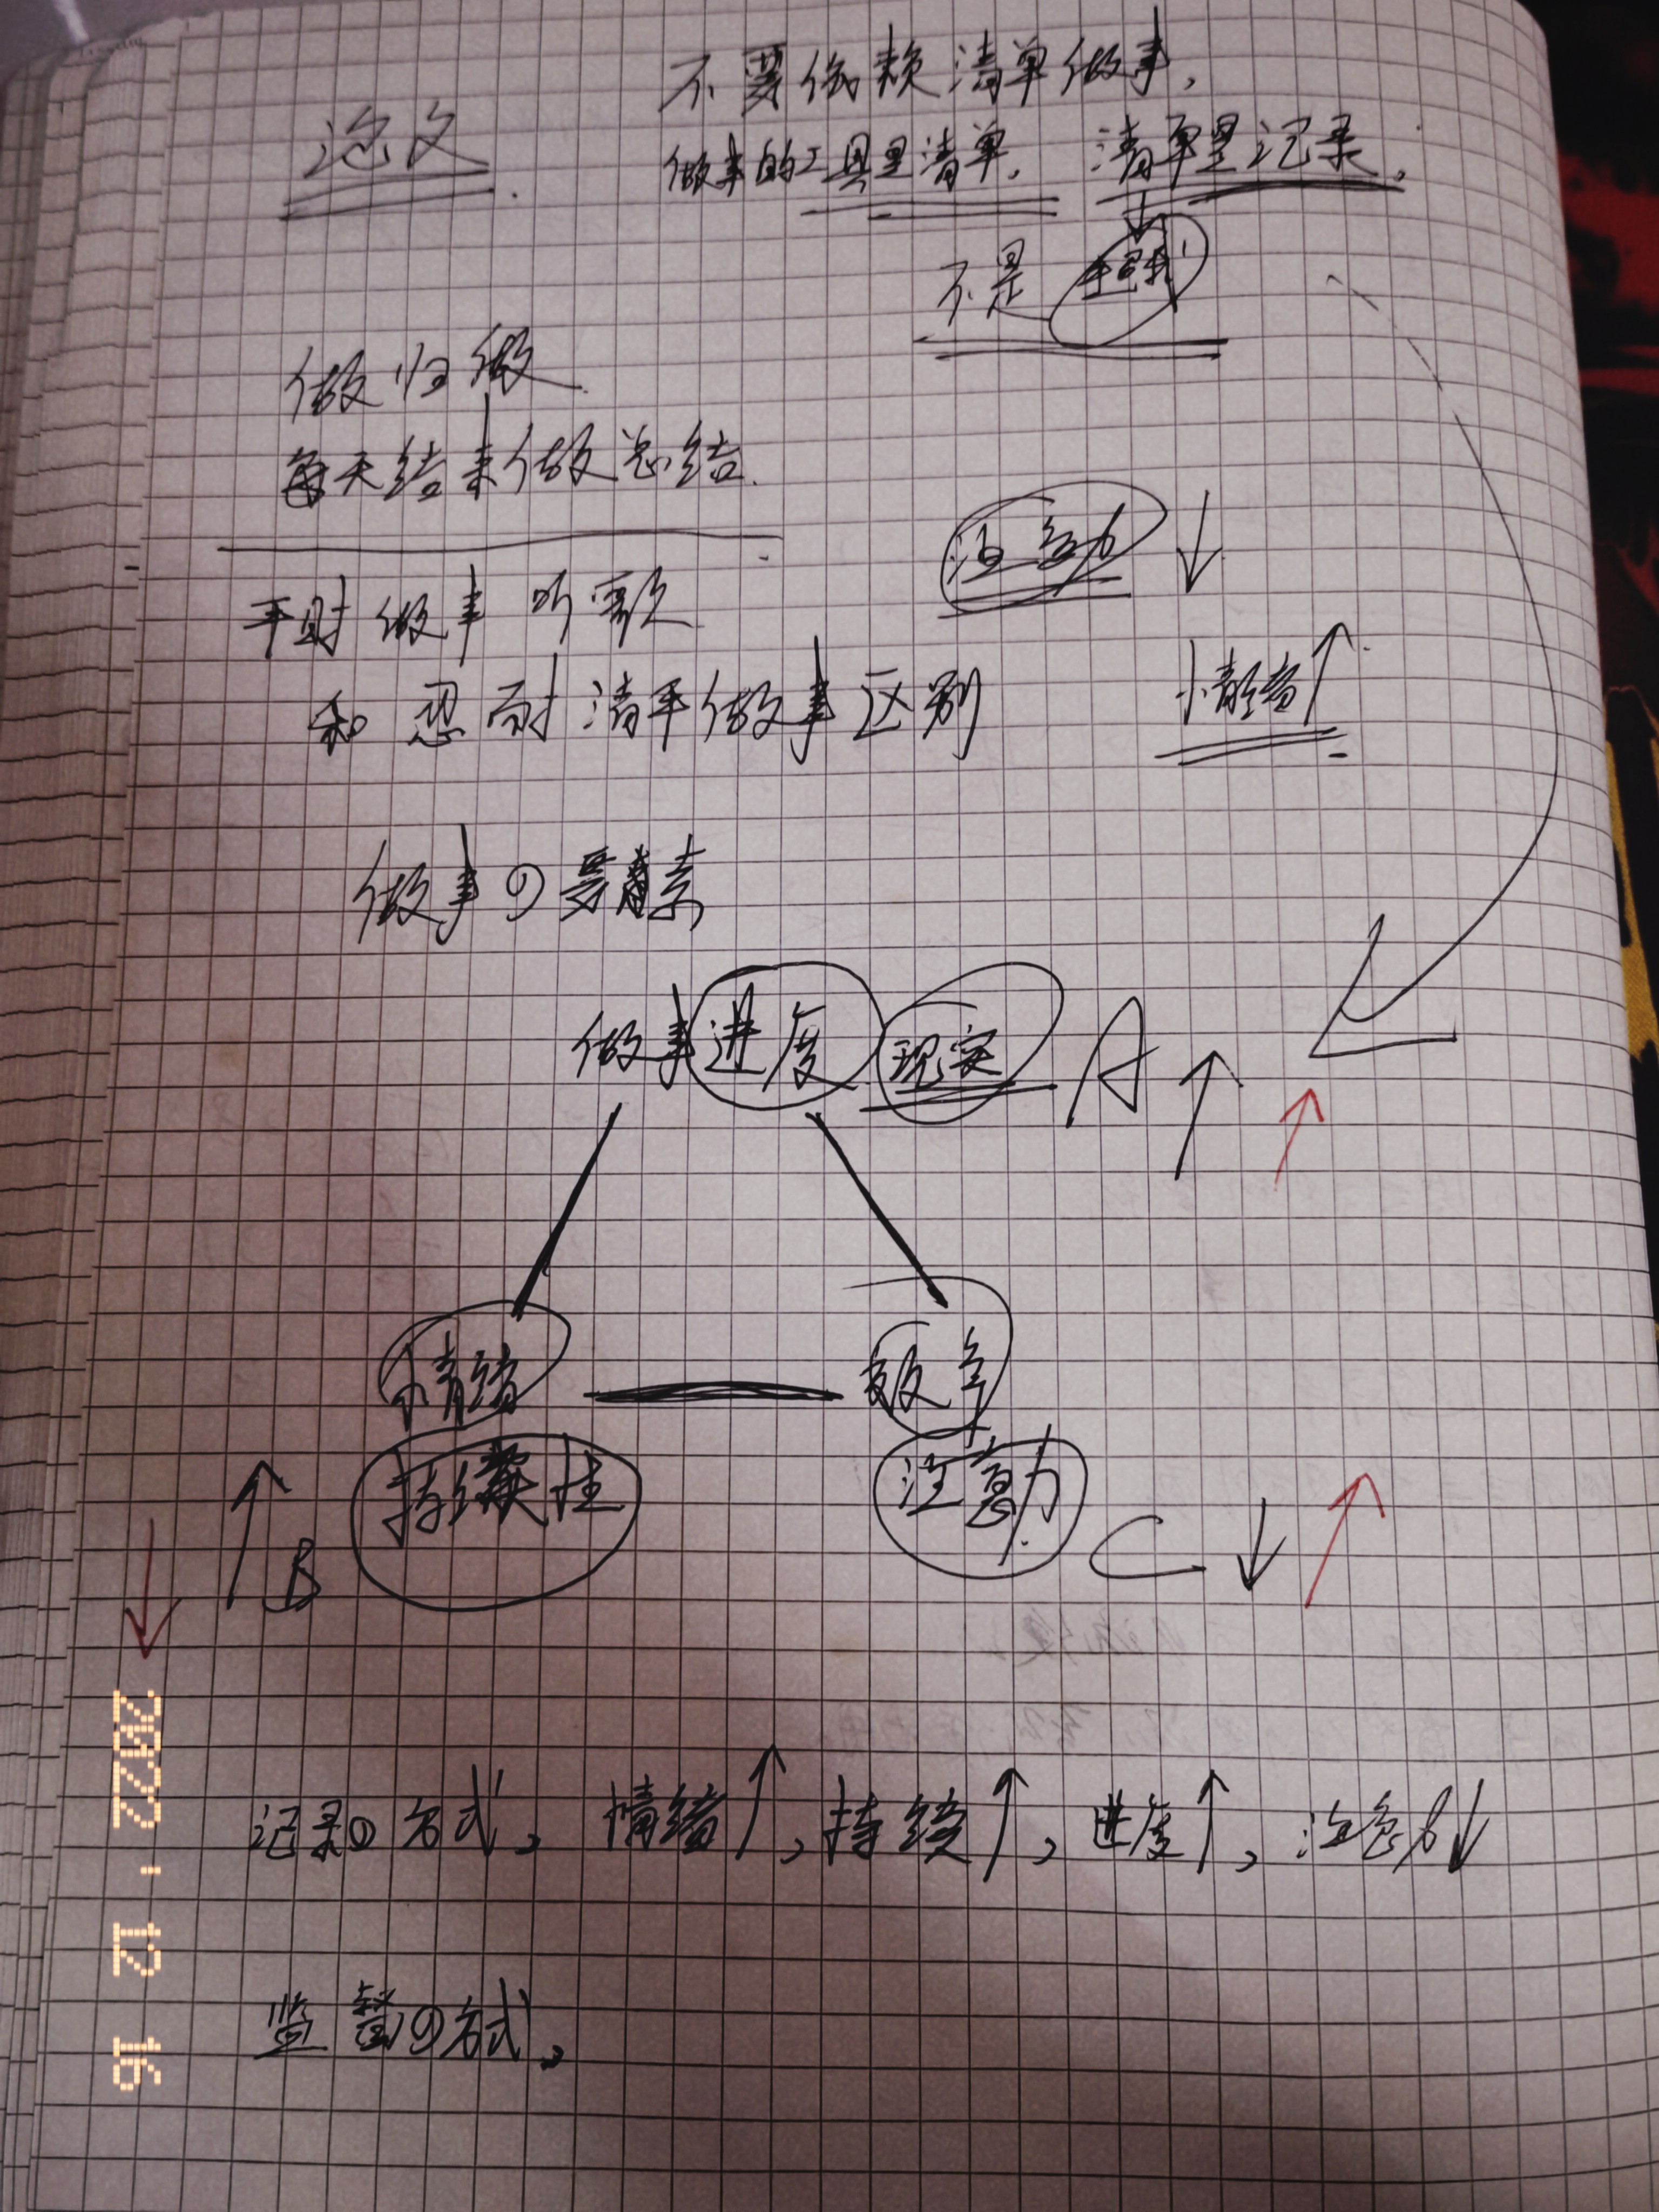 不要依赖清单做事,
做事的工具是清单, 清单是记录.
不是
做归做.
每天结束做总结.
注意力↓
平时做事听歌
和忍耐清单做事区别
情绪↑
做事の要素
做事进度 现实 A↑↑
情绪
持续性
↓↑B
效率
注意力
C↓↑
记录の方式, 情绪↑, 持续↑, 进度↑, 注意力↓
监督の方式,
2022.12 16